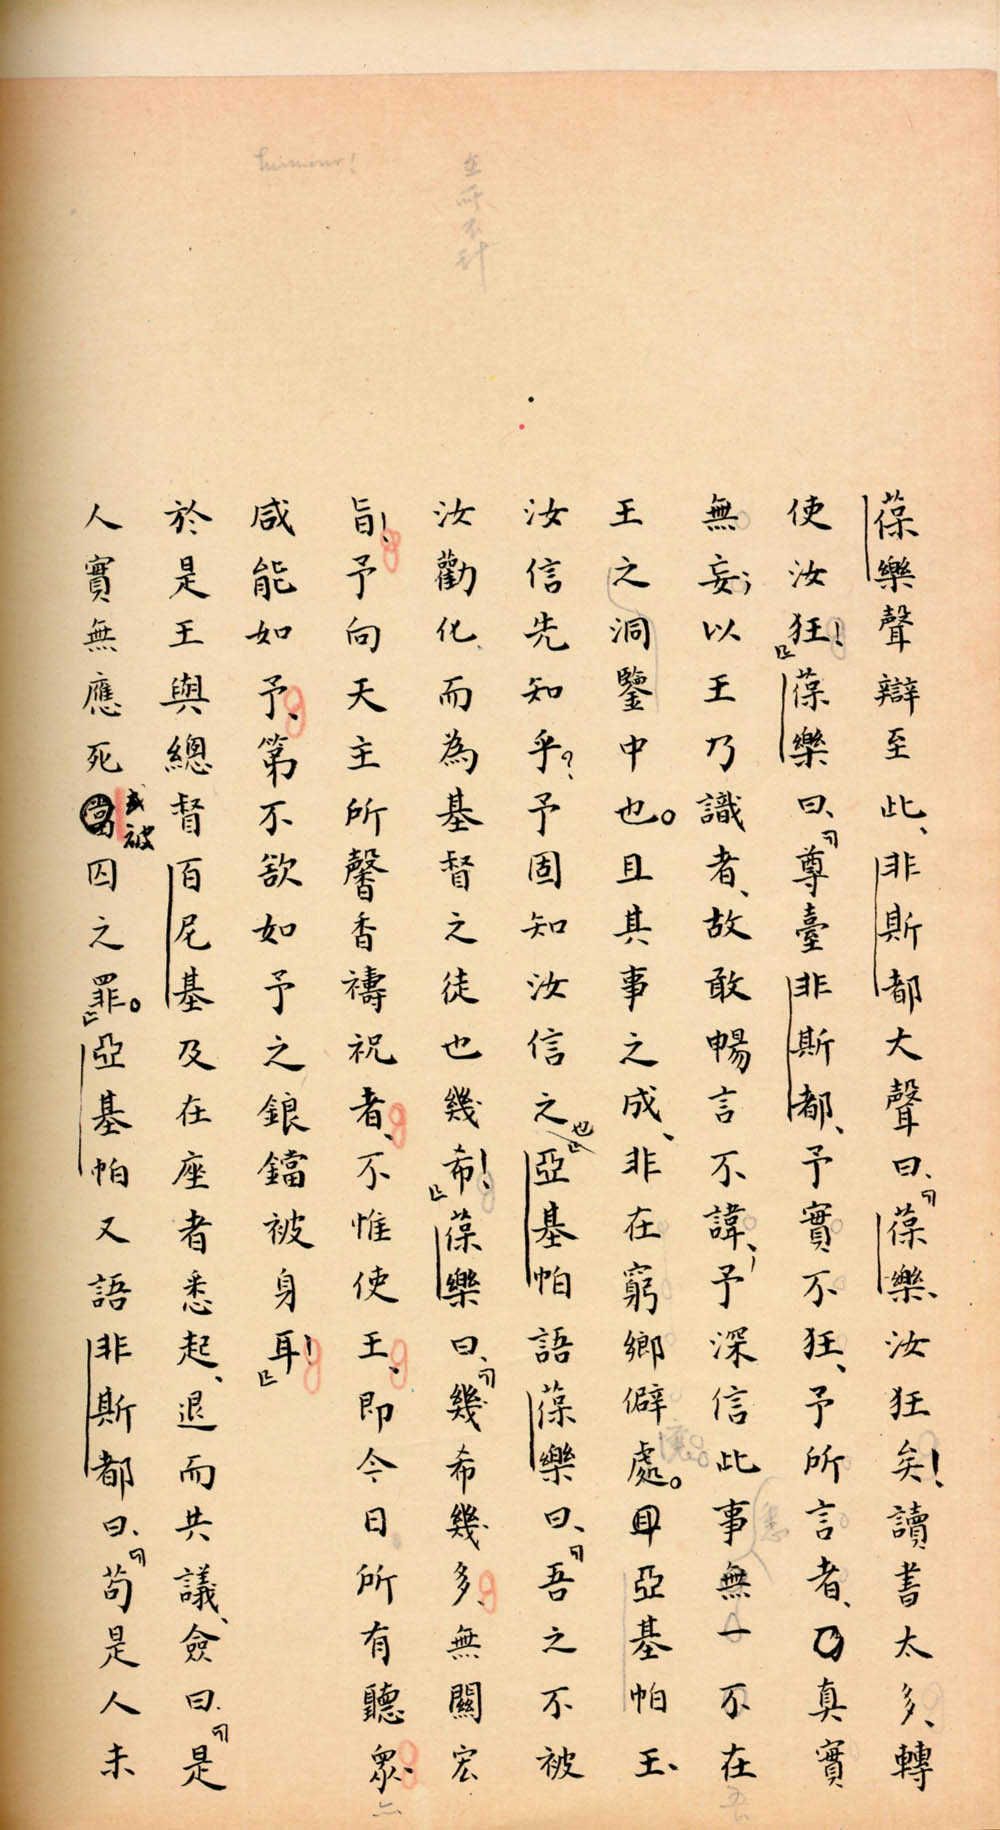 humour!
在所不計
葆樂聲辯至此、非斯都大聲曰、「葆樂、汝狂矣!讀書太多、轉
使汝狂!」葆樂曰、「尊臺非斯都、予實不狂、予所言者、乃真實
無妄;以王乃識者、故敢暢言不諱;予深信此事無一不在
王之洞鑒中也。且其事之成、非在窮鄉僻處。亞基帕王、
汝信先知乎?予固知汝信之也」亞基帕語葆樂曰、「吾之不被
汝勸化、而為基督之徒也幾希!」葆樂曰、「幾希幾多、無關宏
旨!予向天主所馨香禱祝者、不惟使王、即今日所有聽眾、
咸能如予、第不欲如予之鋃鐺被身耳!」
於是王與總督百尼基及在座者悉起、退而共議、僉曰、「是
人實無應死或被囚之罪。」亞基帕又語非斯都曰、「苟是人未